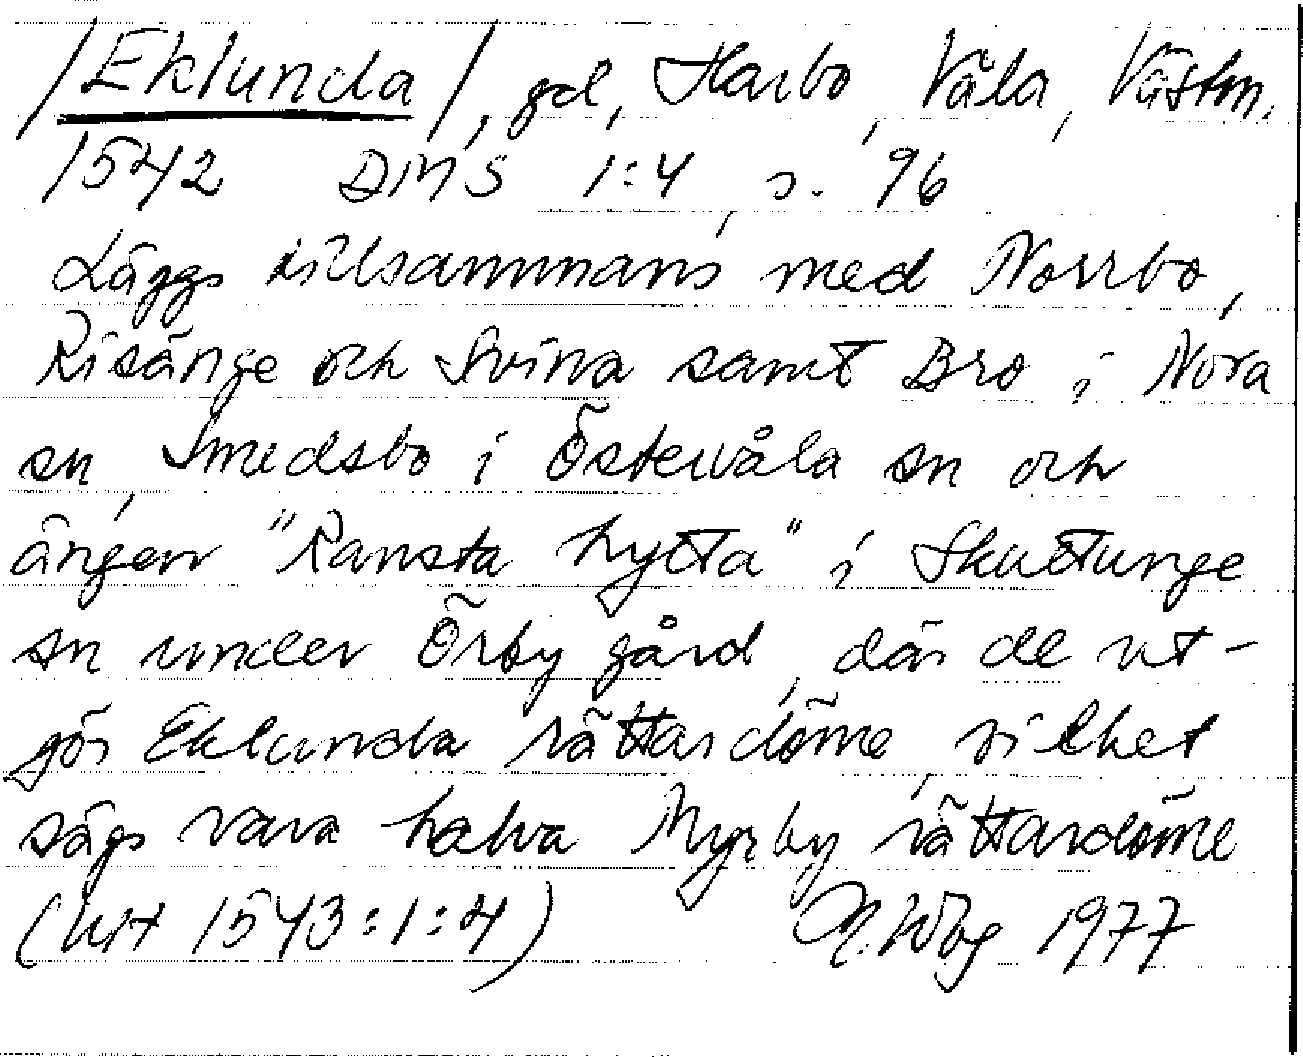 /Eklunda/, gd, Harbo, Våla, Västm.
1542 DMS 1:4, s. 96
Läggs tillsammans med Norrbo,
Risänge och Svina samt Bro i Nora
sn, Smedsbo i Östervåla sn och
ängen "Ransta hytta" i Skuttunge
sn under Örby gård, där de ut-
gör Eklunda rättardöme, vilket
sägs vara halva Myrby rättardöme
(UH 1543:1:4) 1977